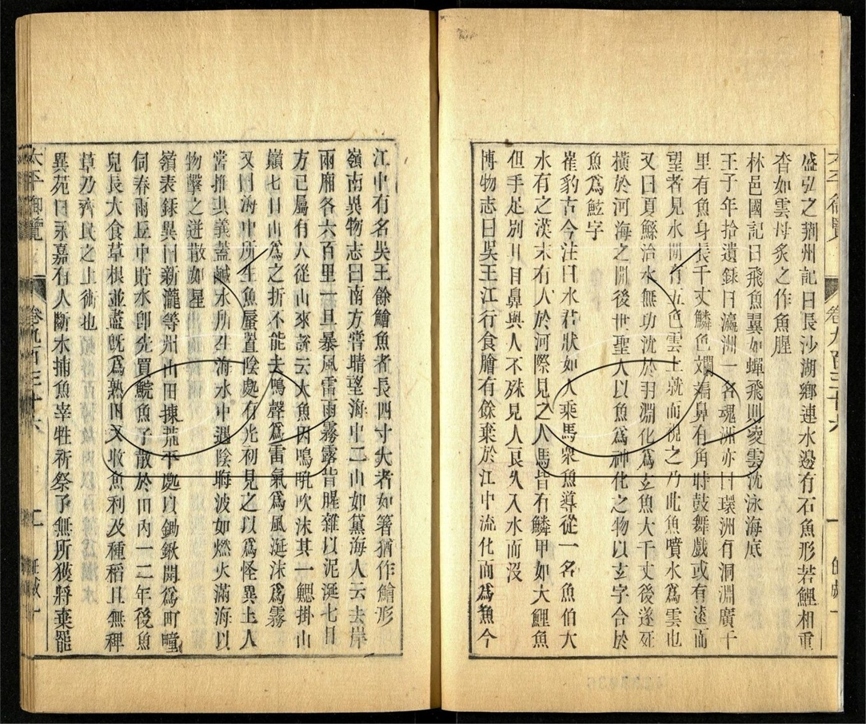 盛弘之荆州記曰長沙湖鄉連水邊有石魚形若鯉相重
沓如雲母炙之作魚腥
林邑國記曰飛魚翼如蟬飛則凌雲沈泳海底
王子年拾遺録曰瀛洲一名魂洲亦曰環洲有洞淵廣千
里有魚身長千丈鱗魚斕鼻有角時鼓舞戲或有遠而
望者見水間有五色雲上就而視之乃此魚噴水爲雲也
又曰夏鯀治水無功沈於羽淵化爲玄魚大千丈後遂死
橫於河海之間後世聖人以魚爲神化之物以玄字合於
魚爲鮌字
崔豹古今注曰水君狀如人乘馬衆魚導從一名魚伯大
水有之漢末有人於河際見之人馬皆有鱗甲如大鯉魚
但手足别耳目鼻與人不殊見人良久入水而没
博物志曰吳王江行食膾有餘棄於江中流化而爲魚今
江中有名吳王餘鱠魚者長四寸大者如箸猶作鱠形
嶺南異物志曰南方嘗晴望海中二山如黛海人云去岸
兩廂各六百里一旦暴風雷雨霧露皆腥雜以泥涎七日
方已屬有人從山來説云大魚因鳴吼吹沫其一鰓掛山
巔七日山爲之折不能去鳴聲爲雷氣爲風涎沫爲霧
又曰海中所生魚蜃置陰處有光初見之以爲怪異土人
常推其義蓋鹹水所生海水中遇陰晦波如燃火滿海以
物擊之迸散如星
嶺表録異曰新瀧等州山田揀荒平處以鋤鍬開爲町疃
伺春雨丘中貯水即先買鯇魚子散於田内一二年後魚
兒長大食草根並盡旣爲熟田又收魚利及種稻且無稗
草乃齊民之上術也
異苑曰永嘉有人斷水捕魚宰牲祈祭了無所獲將棄罷
太平御覽
卷九百三十六